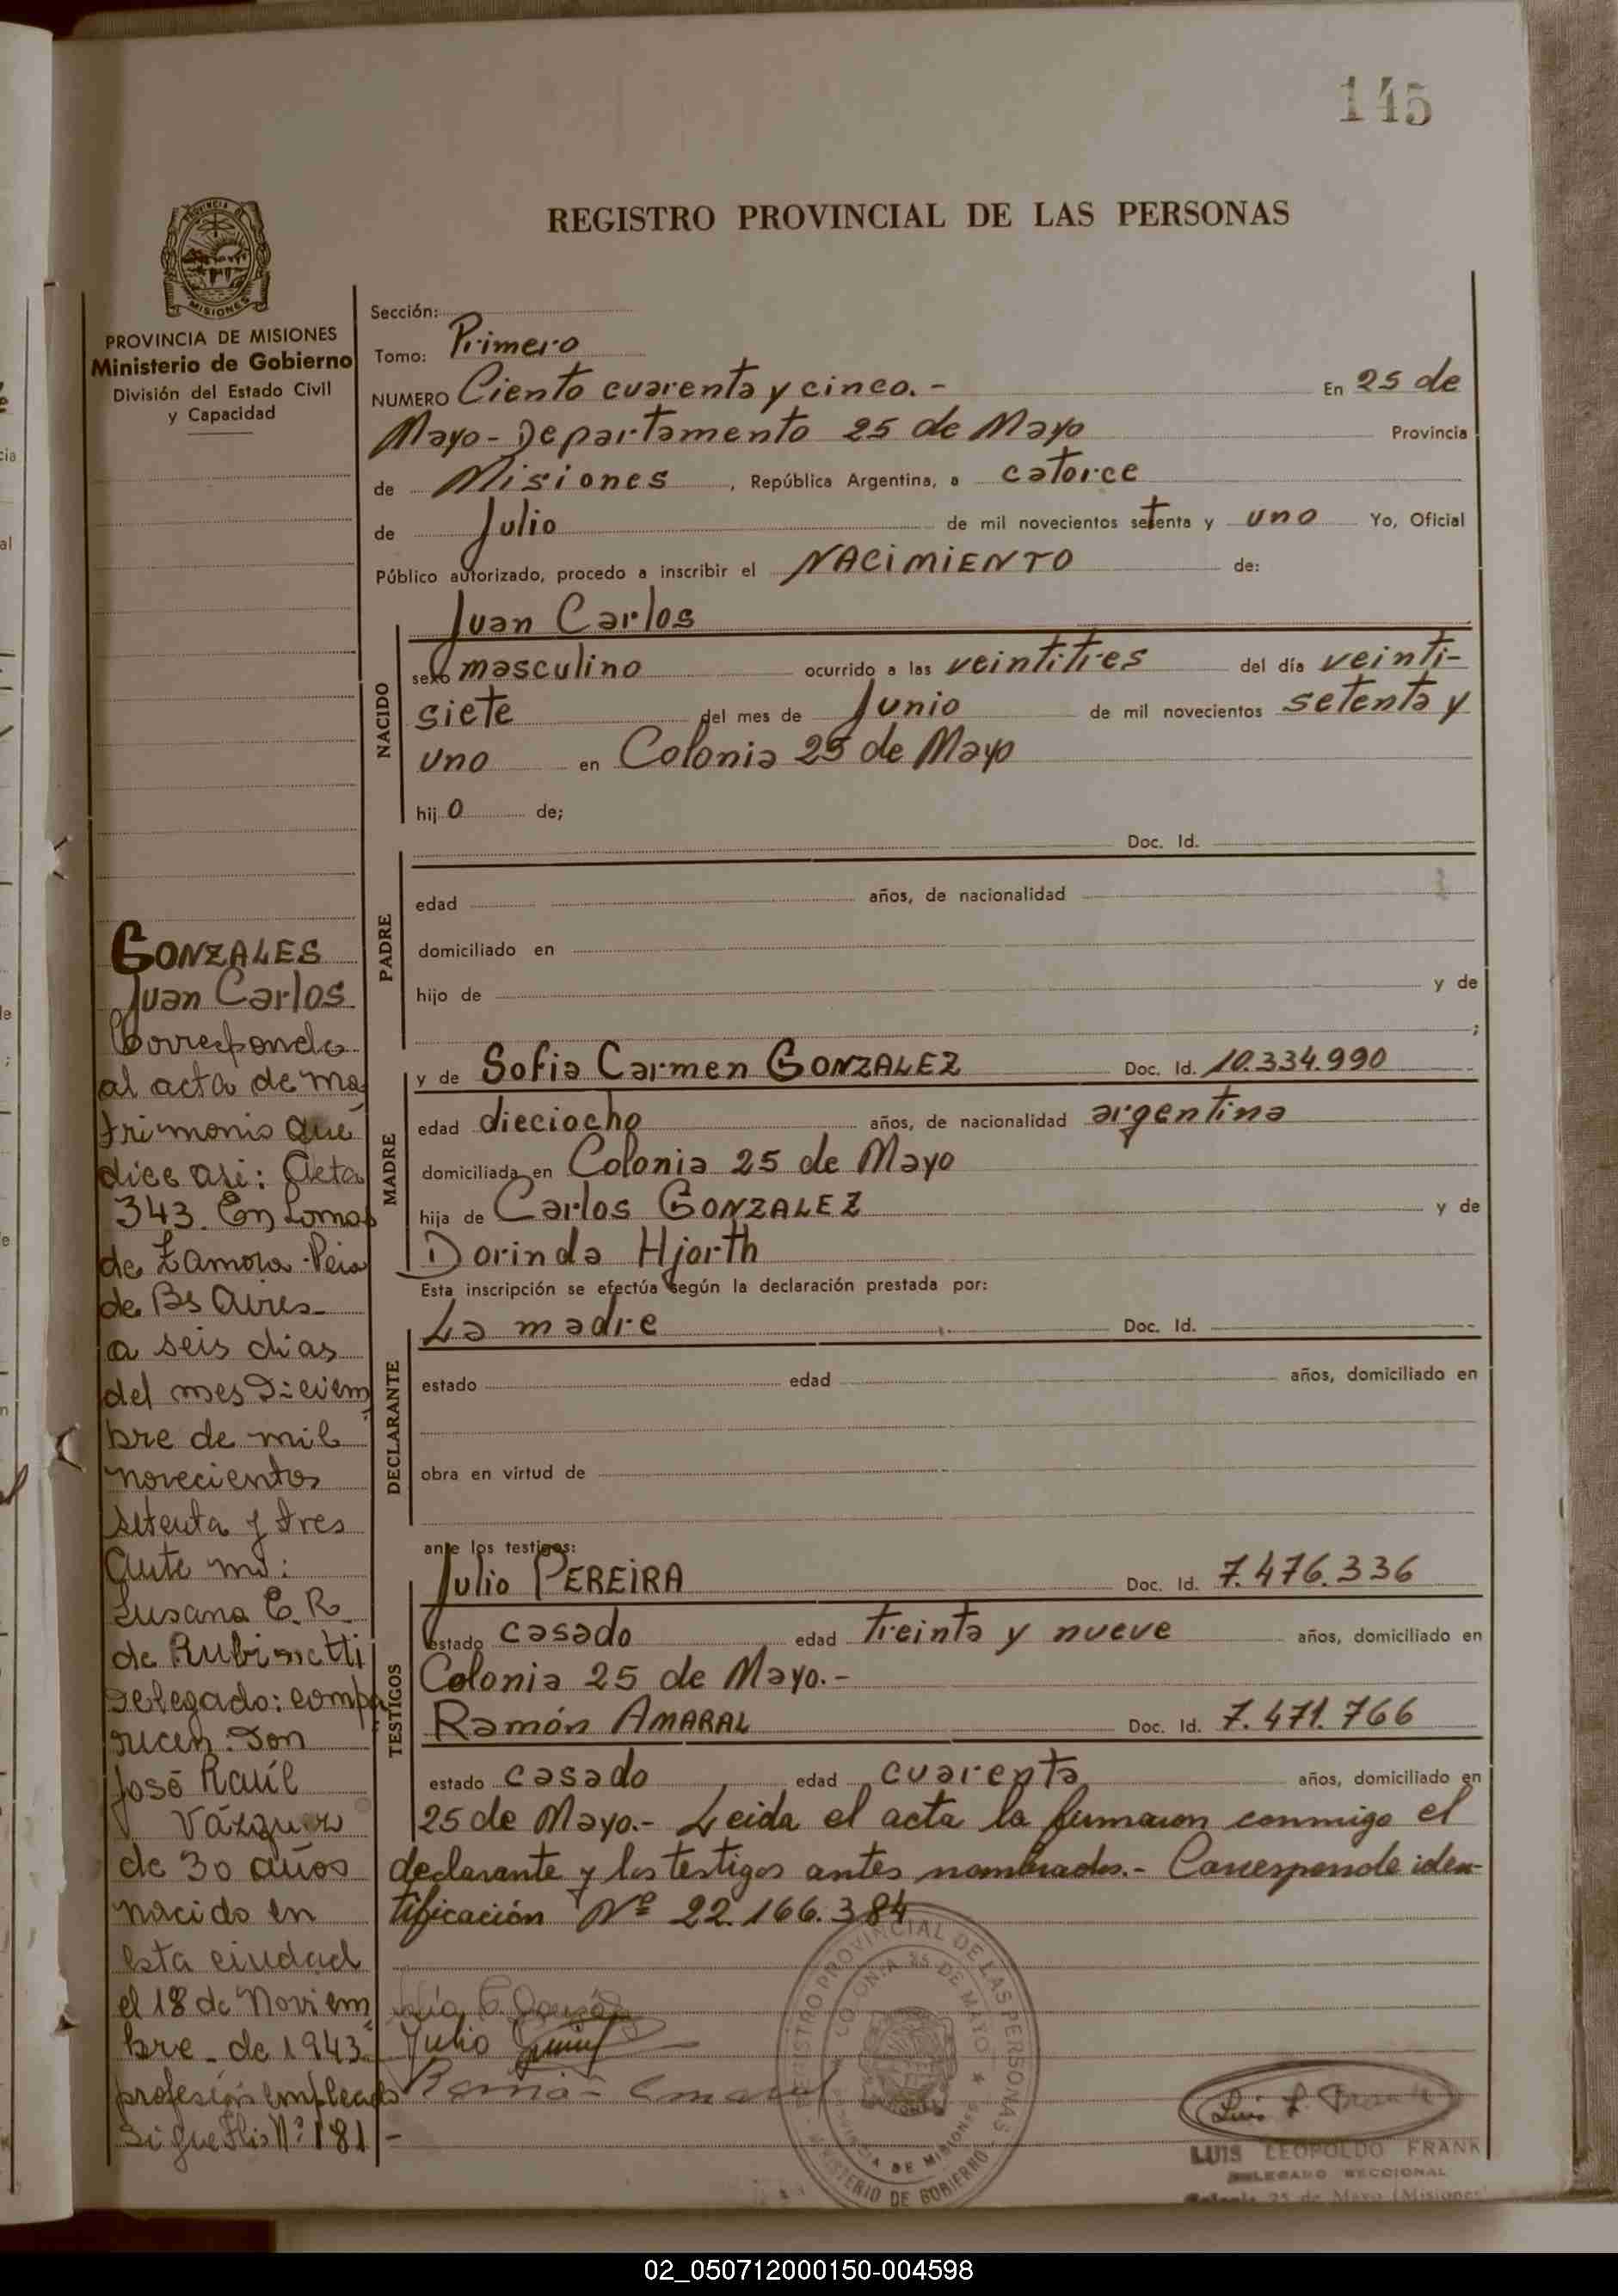 145
REGISTRO PROVINCIAL DE LAS PERSONAS
PROVINCIA DE MISIONES
Ministerio de Gobierno
División del Estado Civil
y Capacidad
Sección:
Tomo: Primero
NUMERO Ciento cuarenta y cinco.- En 25 de
Mayo - Departamento 25 de Mayo Provincia
de Misiones, República Argentina, a catorce
de Julio de mil novecientos setenta y uno Yo, Oficial
Público autorizado, procedo a inscribir el NACIMIENTO de:
NACIDO
Juan Carlos
sexo masculino ocurrido a las veintitres del día veinti-
siete del mes de Junio de mil novecientos setenta y
uno en Colonia 25 de Mayo
hijo de;
PADRE
Doc. Id.
edad años, de nacionalidad
domiciliado en
hijo de y de
;
MADRE
y de Sofia Carmen GONZALEZ Doc. Id. 10.334.990
edad dieciocho años, de nacionalidad argentina
domiciliada en Colonia 25 de Mayo
hija de Carlos GONZALEZ y de
Dorinda Hjorth
Esta inscripción se efectúa según la declaración prestada por:
DECLARANTE
La madre Doc. Id.
estado edad años, domiciliado en
obra en virtud de
ante los testigos:
TESTIGOS
Julio PEREIRA Doc. Id. 7.476.336
estado casado edad treinta y nueve años, domiciliado en
Colonia 25 de Mayo.-
Ramón AMARAL Doc. Id. 7.471.766
estado casado edad cuarenta años, domiciliado en
25 de Mayo.- Leida el acta la firmaron conmigo el
declarante y los testigos antes nombrados.- Corresponde iden-
tificación Nº 22.166.384
Julio
REGISTRO PROVINCIAL DE LAS PERSONAS
COLONIA 25 DE MAYO
PROVINCIA DE MISIONES
MINISTERIO DE GOBIERNO
LUIS LEOPOLDO FRANK
DELEGADO SECCIONAL
Colonia 25 de Mayo (Misiones)
GONZALES
Juan Carlos
Corresponde
al acta de ma
trimonio que
dice asi: Acta
343. En Lomas
de Zamora - Pcia
de Bs Aires
a seis dias
del mes Diciem
bre de mil
novecientos
setenta y tres
Ante mi:
Susana E. R.
de Rubinetti
Delegado: compa
recen. Don
José Raúl
Vázquez
de 30 años
nacido en
esta ciudad
el 18 de Noviem
bre - de 1943.
profesión empleado
sigue Flio Nº 181 -
02_050712000150-004598